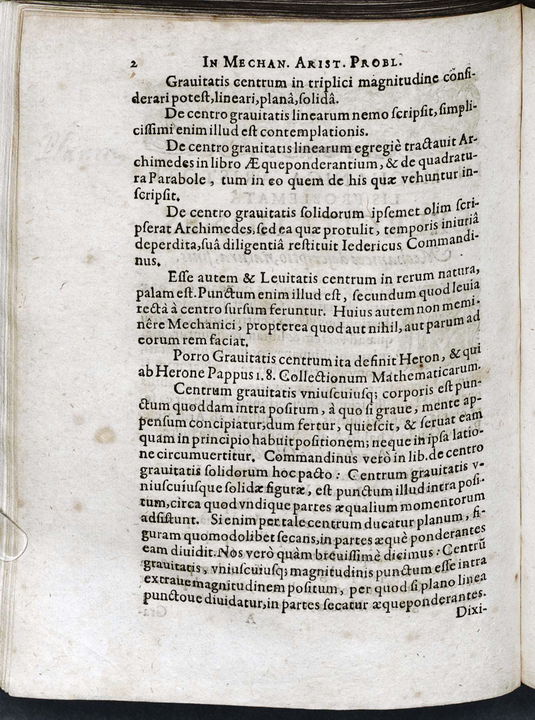 2 IN MECHAN. ARIST. PROBL.
Grauitatis centrum in triplici magnitudine cõsi-
derari potest, lineari, planâ, solidâ.
De centro grauitatis linearum nemo scripsit, simpli-
cissimi enim illud est contemplationis.
De centro grauitatis linearum egregiè tractauit Ar-
chimedes in libro Æqueponderantium, & de quadratu-
ra Parabole, tum in eo quem de his quæ vehuntur in-
scripsit.
De centro grauitatis solidorum ipsemet olim scri-
pserat Archimedes, sed ea quæ protulit, temporis iniuriâ
deperdita, suâ diligentiâ restituit Iedericus Commandi-
nus.
Esse autem & Leuitatis centrum in rerum natura,
palam est. Punctum enim illud est, secundum quod leuia
rectà à centro sursum feruntur. Huius autem non memi-
nêre Mechanici, propterea quod aut nihil, aut parum ad
eorum rem faciat.
Porro Grauitatis centrum ita definit Heron, & qui
ab Herone Pappus l. 8. Collectionum Mathematicarum.
Centrum grauitatis vniuscuiusq; corporis est pun-
ctum quoddam intra positum, à quo si graue, mente ap-
pensum concipiatur, dum fertur, quiescit, & seruat eam
quam in principio habuit positionem; neque in ipsa latio-
ne circumuertitur. Commandinus verò in lib. de centro
grauitatis solidorum hoc pacto: Centrum grauitatis v-
niuscuiusque solidæ figuræ, est punctum illud intra posi-
tum, circa quod vndique partes æqualium momentorum
adsistunt. Si enim per tale centrum ducatur planum, fi-
guram quomodolibet secans, in partes æquè ponderantes
eam diuidit. Nos verò quàm breuissimè dicimus: Centrũ
grauitatis, vniuscuiusq; magnitudinis punctum esse intra
extraue magnitudinem positum, per quod si plano linea
punctoue diuidatur, in partes secatur æqueponderantes.
Dixi-